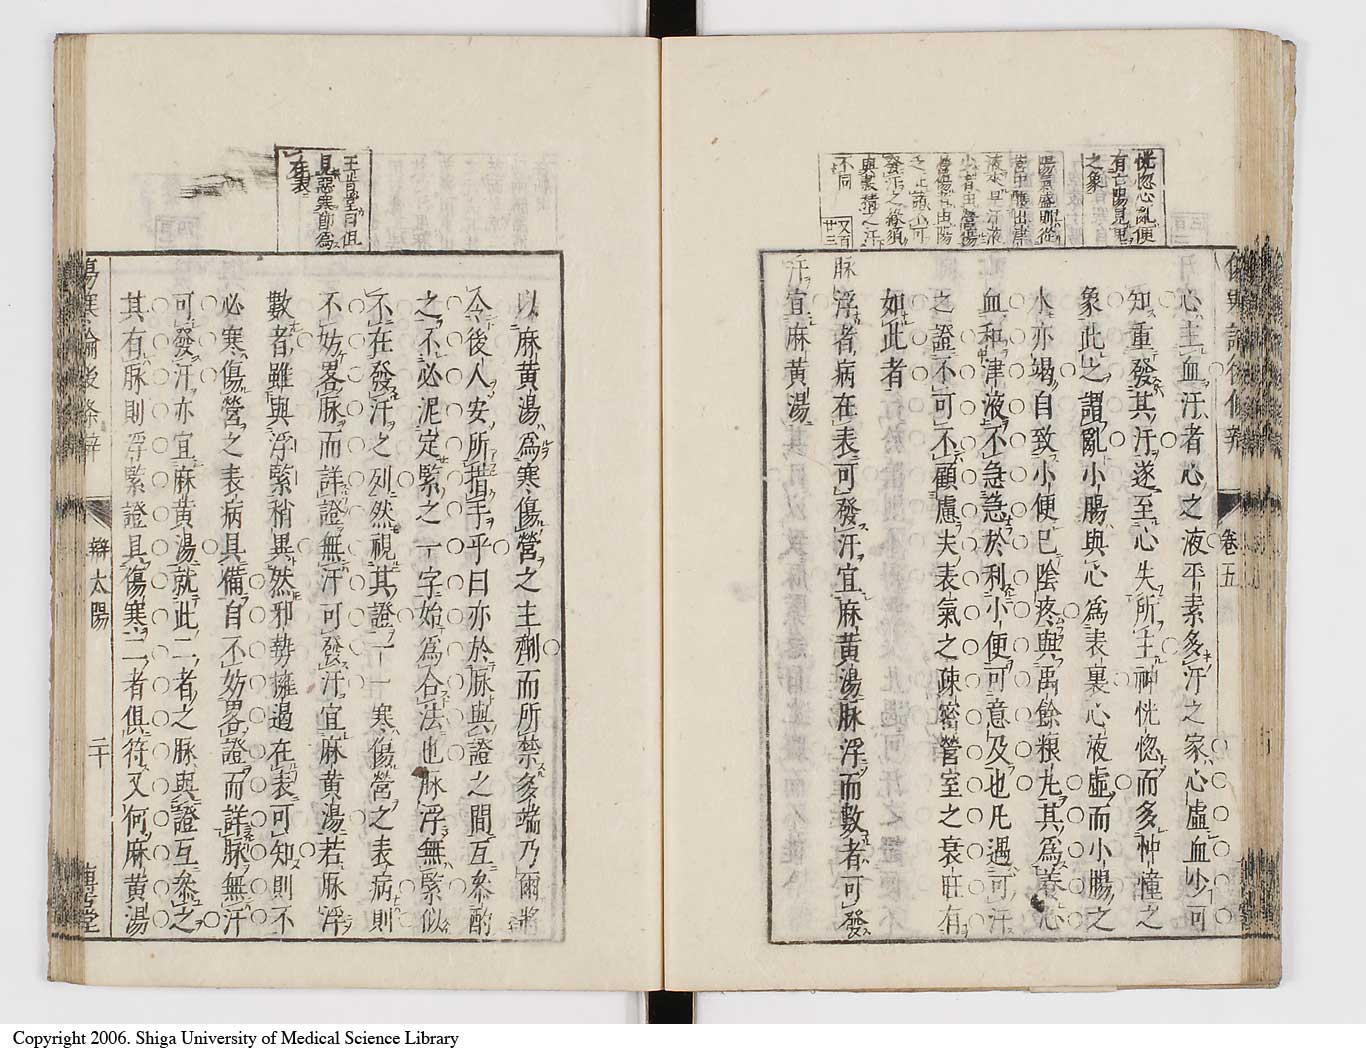 恍惚心亂便
有亡陽見鬼
之象
陽氣盛即從
液是汗液
發汗之條須
與裏積之汗
不同
又百
廿三
卷五
心主血汗者心之液平素多汗之家心虛血少可
知重發其汗遂至心失所主神恍惚而多忡憧之
象此之謂亂小腸與心為表裏心液虛而小腸之
水亦竭自致小便已陰疼與禹餘粮丸其為養心
血和津液不急急於利小便可意及也凡遇可汗
之證不可不顧慮夫表氣之疎密營室之衰旺有
如此者
脉浮者病在表可發汗宜麻黃湯脉浮而數者可發
汗宜麻黃湯
王肯堂曰但
見惡寒即為
在表
以麻黃湯為寒傷營之主劑而所禁多端乃爾將
令後人安所措手乎曰亦於脉與證之間互參酌
之不必泥定緊之一字始為合法也脉浮無緊似
不在發汗之列然視其證一一寒傷營之表病則
不妨畧脉而詳證無汗可發汗宜麻黃湯若脉浮
數者雖與浮緊稍異然邪勢擁遏在表可知則不
必寒傷營之表病具備自不妨畧證而詳脉無汗
可發汗亦宜麻黃湯就此二者之脉與證互參之
其有脉則浮緊證具傷寒二者俱符又何麻黃湯
傷寒論後條辨
辨太陽
二十
博古堂
Copyright 2006. Shiga University of Medical Science Library